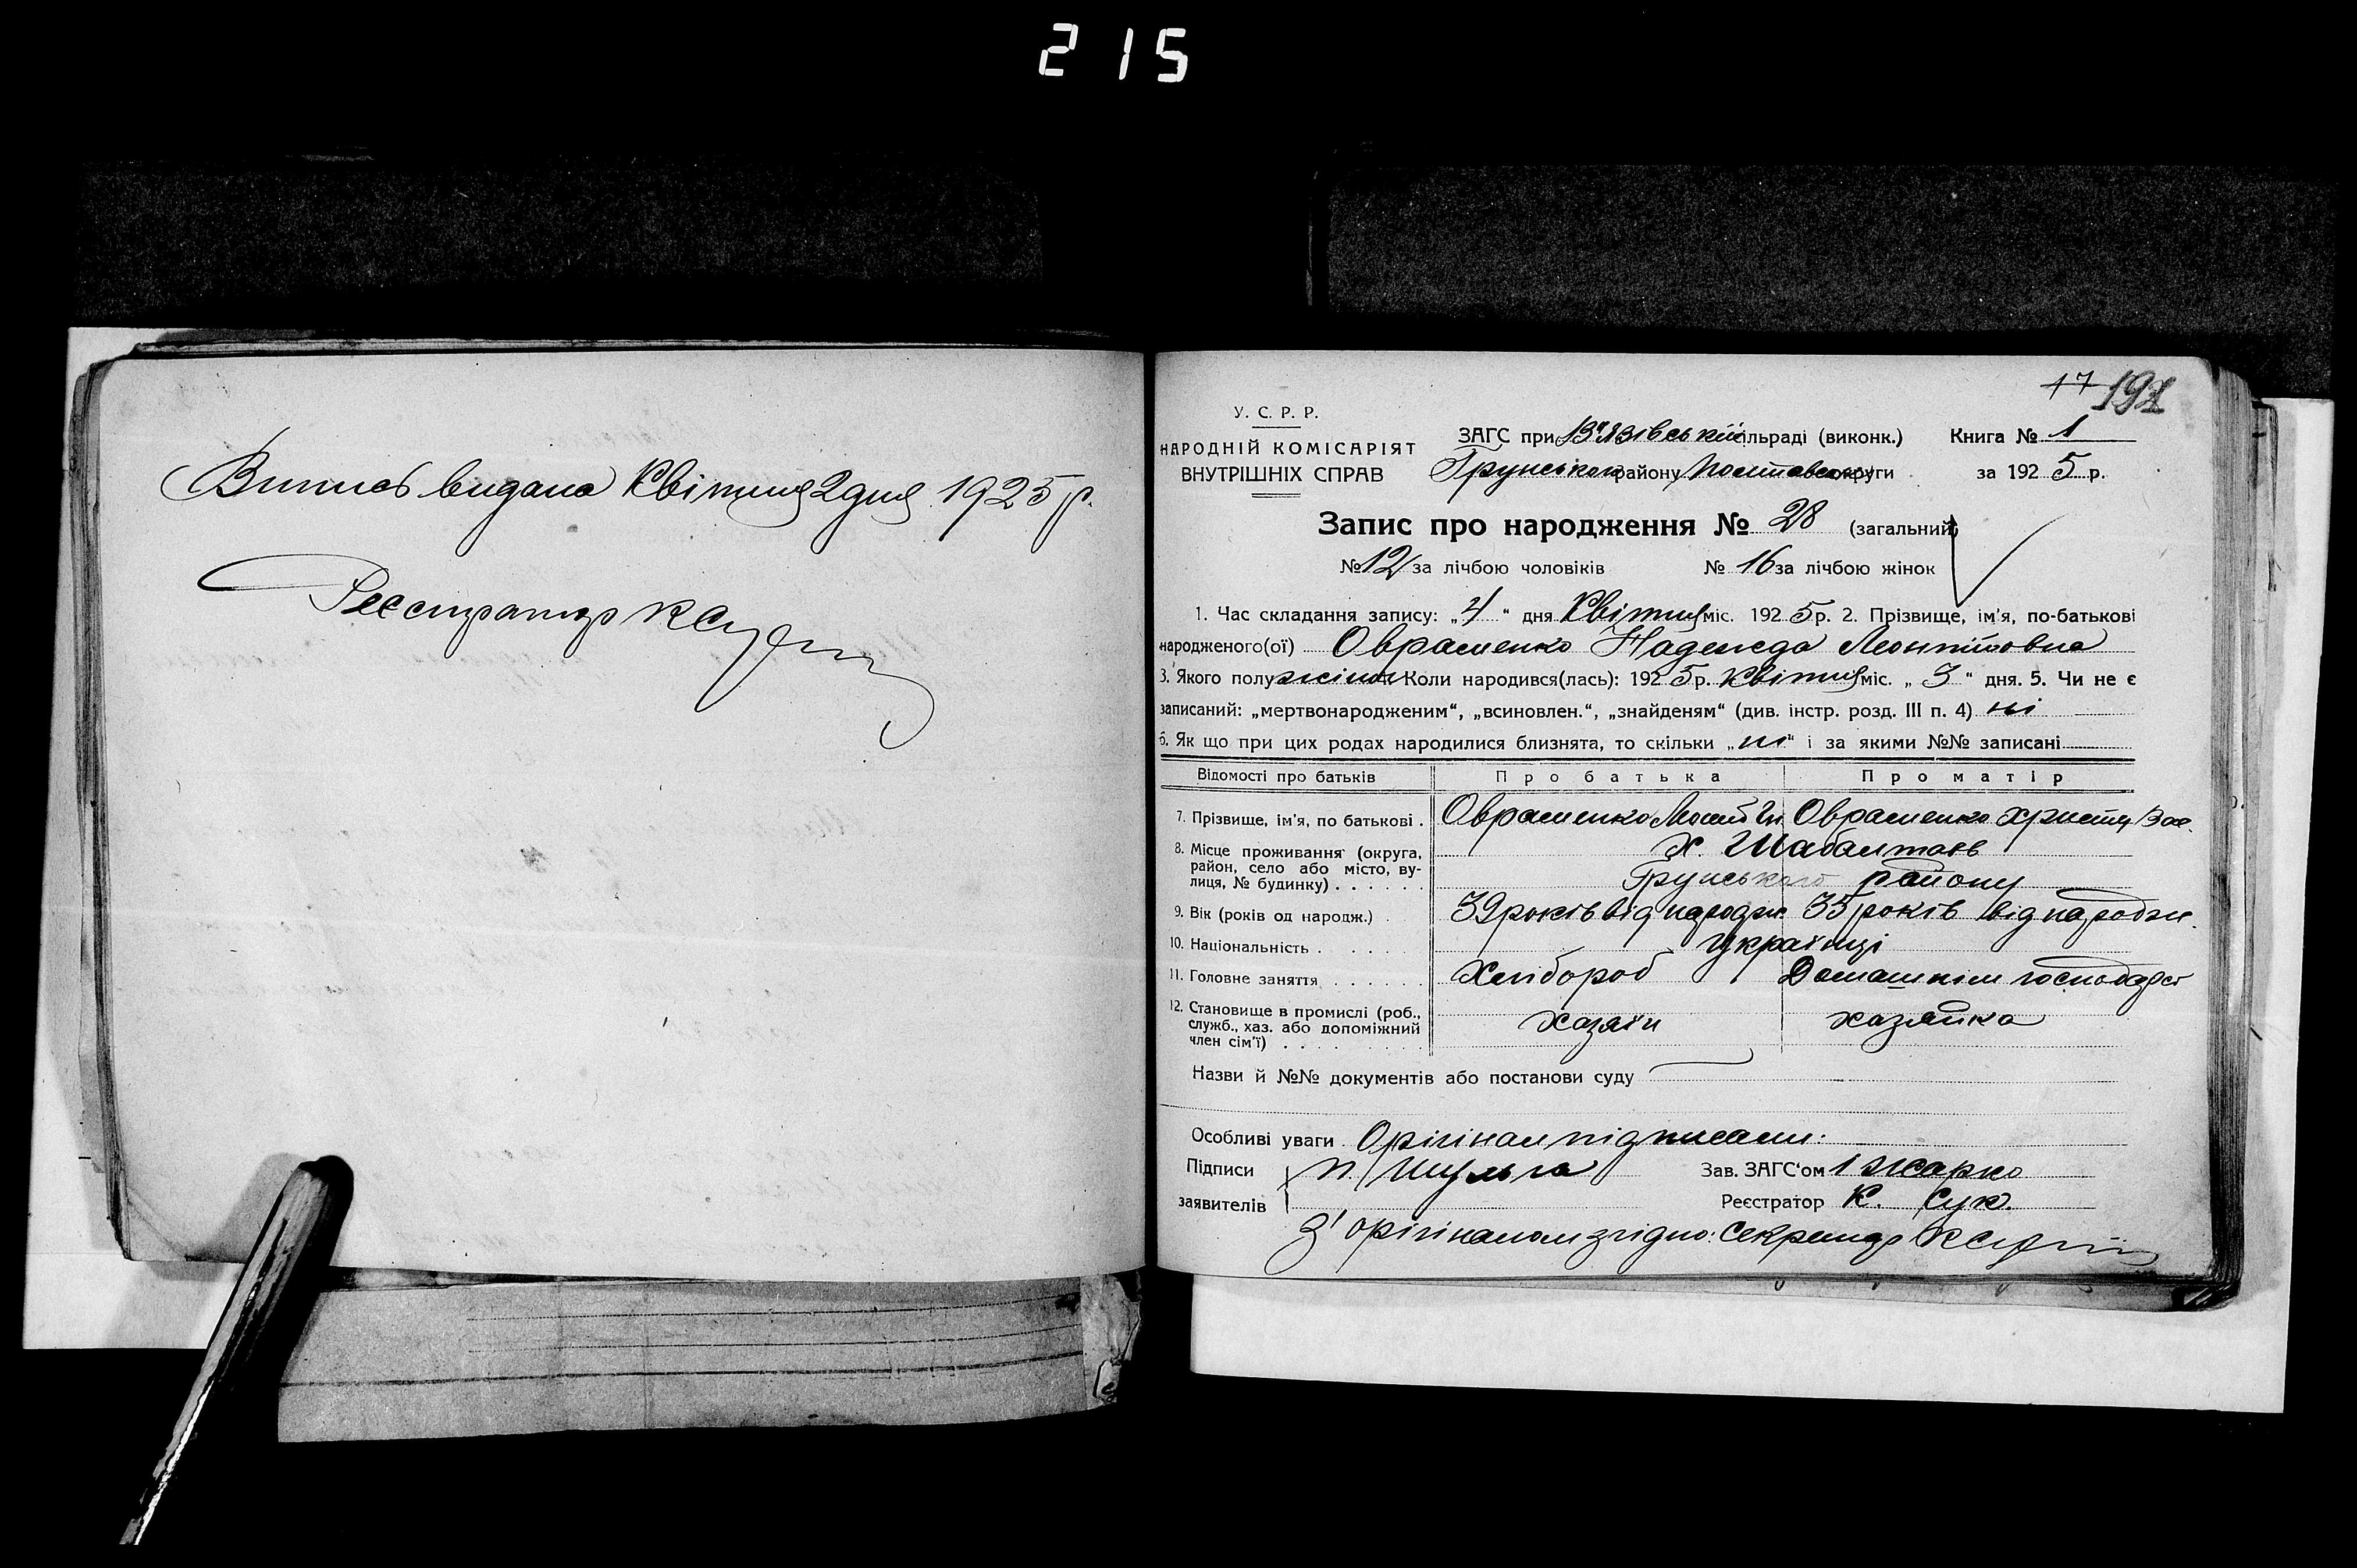 215
Випись видана Квітня 2 дня 1925 р.
Реєстратор К Сук
17 191
У. С. Р. Р.
НАРОДНІЙ КОМІСАРІЯТ
ВНУТРІШНІХ СПРАВ
ЗАГС при В'язівській сільраді (виконк.) Книга № 1
Грунського району Полтавськ округи за 1925 р.
Запис про народження № 28 (загальний)
№ 12 за лічбою чоловіків № 16 за лічбою жінок
1. Час складання запису: „4“ дня Квітня міс. 1925 р. 2. Прізвище, ім'я, по-батькові
народженого(ої) Овраменко Надежда Леонтіовна
3. Якого полу жіноч Коли народився(лась): 1925 р. Квітня міс. „3“ дня. 5. Чи не є
записаний: „мертвонародженим“, „всиновлен.“, „знайденям“ (див. інстр. розд. III п. 4) ні
6. Як що при цих родах народилися близнята, то скільки „ні“ і за якими №№ записані
Відомості про батьків Про батька Про матір
7. Прізвище, ім'я, по батькові . Овраменко Овраменко Христя Вас.
8. Місце проживання (округа,
район, село або місто, вулиця, № будинку) . . . . . .
Х.
Грунського району
9. Вік (років од народж.) . 39 років від народж. 35 років від народж.
10. Національність . . . . . Українці
11. Головне заняття . . . . . . Хлібороб Домашнім господарст
12. Становище в промислі (роб.,
служб., хаз. або допоміжний
член сім'ї) . . . . . . . . .
хазяїн хазяйка
Назви й №№ документів або постанови суду
Особливі уваги Орігінал підписали:
Підписи П. Шульга Зав. ЗАГС'ом Жарко
заявителів Реєстратор К. Сук.
З' орігіналом згідно: Секретар К Сук